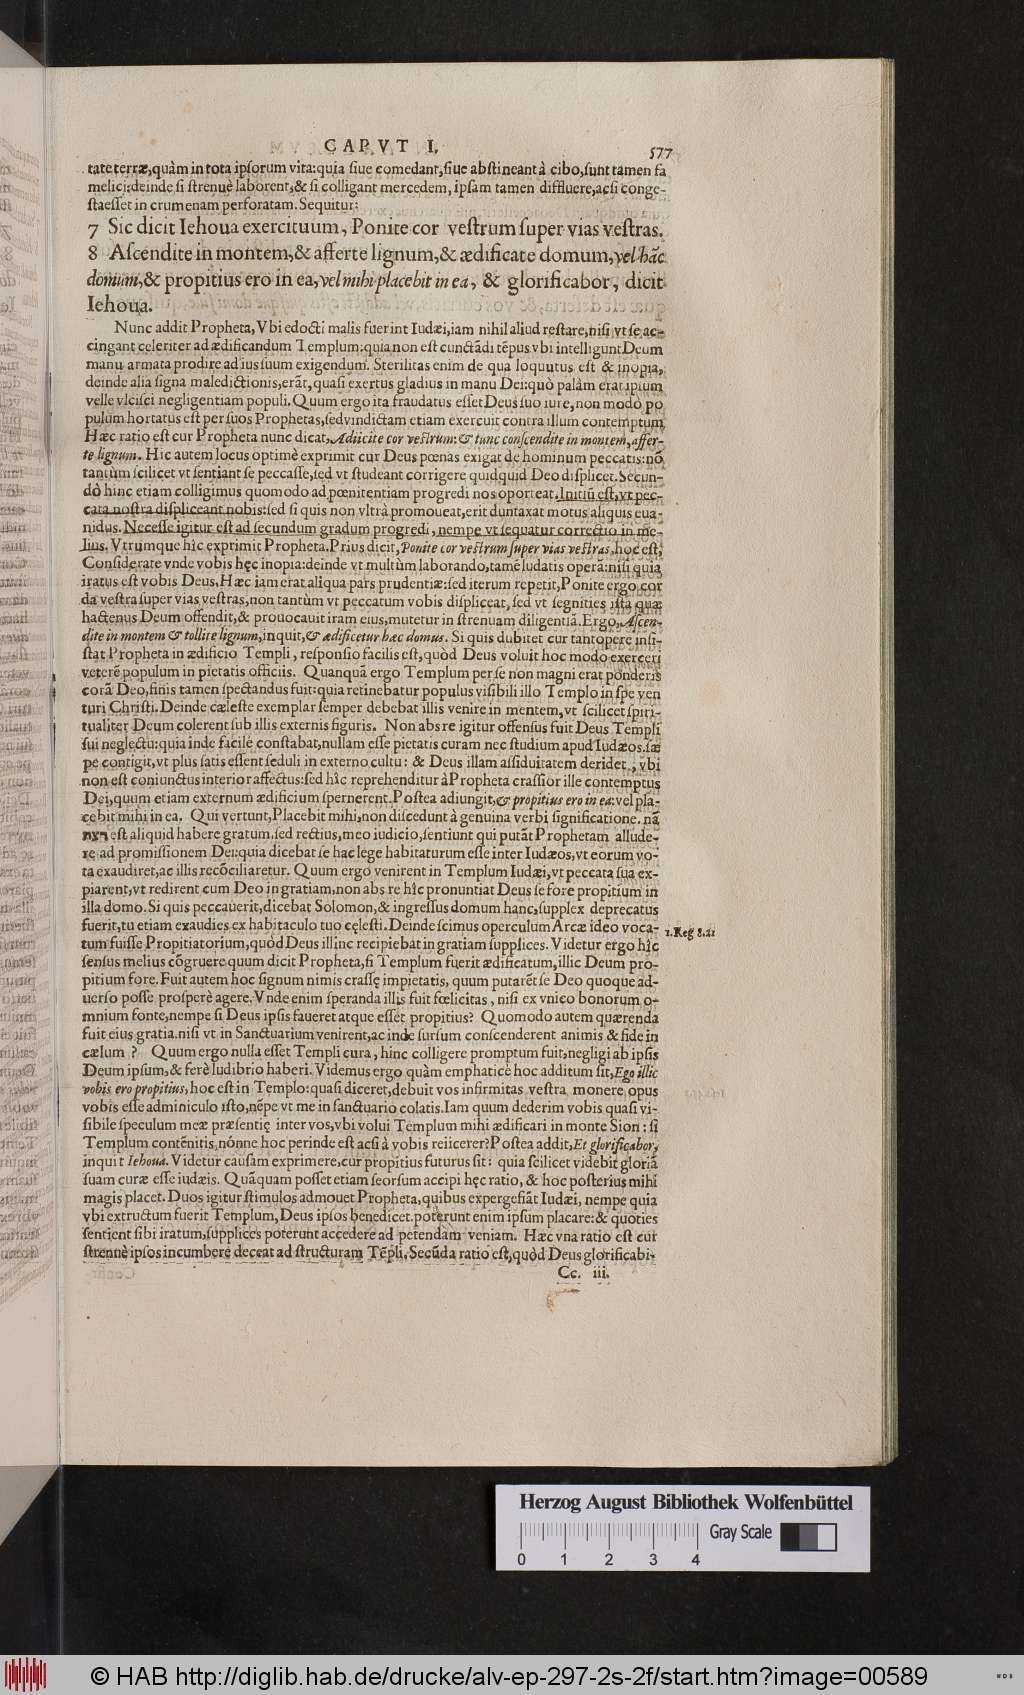 CAPVT I. 577
tate terræ, quàm in tota ipsorum vita: quia siue comedant, siue abstineant à cibo, sunt tamen fa
melici: deinde si strenuè laborent, & si colligant mercedem, ipsam tamen diffluere, acsi conge-
sta esset in crumenam perforatam. Sequitur:
7 Sic dicit Iehoua exercituum, Ponite cor vestrum super vias vestras.
8 Ascendite in montem, & afferte lignum, & ædificate domum, vel hãc
domum, & propitius ero in ea, vel mihi placebit in ea, & glorificabor, dicit
Iehoua.
Nunc addit Propheta, Vbi edocti malis fuerint Iudæi, iam nihil aliud restare, nisi vt se ac-
cingant celeriter ad ædificandum Templum: quia non est cunctãdi tẽpus vbi intelligunt Deum
manu armata prodire ad ius suum exigendum. Sterilitas enim de qua loquutus est & inopia,
deinde alia signa maledictionis, erãt, quasi exertus gladius in manu Dei: quò palàm erat ipsum
velle vlcisci negligentiam populi. Quum ergo ita fraudatus esset Deus suo iure, non modò po
pulum hortatus est per suos Prophetas, sed vindictam etiam exercuit contra illum contemptum
Hæc ratio est cur Propheta nunc dicat, Adiicite cor vestrum: & tunc conscendite in montem, affer-
te lignum. Hic autem locus optimè exprimit cur Deus pœnas exigat de hominum peccatis: nõ
tantùm scilicet vt sentiant se peccasse, sed vt studeant corrigere quidquid Deo displicet. Secun-
dò hinc etiam colligimus quomodo ad pœnitentiam progredi nos oporteat. Initiũ est, vt pec-
cata nostra displiceant nobis: sed si quis non vltrà promoueat, erit duntaxat motus aliquis eua-
nidus. Necesse igitur est ad secundum gradum progredi, nempe vt sequatur correctio in me-
lius. Vtrumque hîc exprimit Propheta. Prius dicit, Ponite cor vestrum super vias vestras, hoc est,
Considerate vnde vobis hęc inopia: deinde vt multùm laborando, tamẽ ludatis opera: nisi quia
iratus est vobis Deus. Hæc iam erat aliqua pars prudentiæ: sed iterum repetit, Ponite ergo cor
da vestra super vias vestras, non tantùm vt peccatum vobis displiceat, sed vt segnities ista quæ
hactenus Deum offendit, & prouocauit iram eius, mutetur in strenuam diligentiã. Ergo, Ascen-
dite in montem & tollite lignum, inquit, & ædificetur hæc domus. Si quis dubitet cur tantopere insi-
stat Propheta in ædificio Templi, responsio facilis est, quòd Deus voluit hoc modo exerceri
veterẽ populum in pietatis officiis. Quanquã ergo Templum per se non magni erat ponderis
corã Deo, finis tamen spectandus fuit: quia retinebatur populus visibili illo Templo in spe ven
turi Christi. Deinde cæleste exemplar semper debebat illis venire in mentem, vt scilicet spiri-
tualiter Deum colerent sub illis externis figuris. Non abs re igitur offensus fuit Deus Templi
sui neglectu: quia inde facilè constabat, nullam esse pietatis curam nec studium apud Iudæos. sæ
pe contigit, vt plus satis essent seduli in externo cultu: & Deus illam assiduitatem deridet, vbi
non est coniunctus interior affectus: sed hîc reprehenditur à Propheta crassior ille contemptus
Dei, quum etiam externum ædificium spernerent. Postea adiungit, & propitius ero in ea: vel pla-
cebit mihi in ea. Qui vertunt, Placebit mihi, non discedunt à genuina verbi significatione. nã
רצה est aliquid habere gratum. sed rectius, meo iudicio, sentiunt qui putãt Prophetam allude-
re ad promissionem Dei: quia dicebat se hac lege habitaturum esse inter Iudæos, vt eorum vo-
ta exaudiret, ac illis recõciliaretur. Quum ergo venirent in Templum Iudæi, vt peccata sua ex-
piarent, vt redirent cum Deo in gratiam, non abs re hîc pronuntiat Deus se fore propitium in
illa domo. Si quis peccauerit, dicebat Solomon, & ingressus domum hanc, supplex deprecatus
fuerit, tu etiam exaudies ex habitaculo tuo cęlesti. Deinde scimus operculum Arcæ ideo voca- 1. Reg 8. 21
tum fuisse Propitiatorium, quòd Deus illinc recipiebat in gratiam supplices. Videtur ergo hîc
sensus melius cõgruere quum dicit Propheta, si Templum fuerit ædificatum, illic Deum pro-
pitium fore. Fuit autem hoc signum nimis crassę impietatis, quum putarẽt se Deo quoque ad-
uerso posse prosperè agere. Vnde enim speranda illis fuit fœlicitas, nisi ex vnico bonorum o-
mnium fonte, nempe si Deus ipsis faueret atque esset propitius? Quomodo autem quærenda
fuit eius gratia. nisi vt in Sanctuarium venirent, ac inde sursum conscenderent animis & fide in
cælum? Quum ergo nulla esset Templi cura, hinc colligere promptum fuit, negligi ab ipsis
Deum ipsum, & ferè ludibrio haberi. Videmus ergo quàm emphaticè hoc additum sit, Ego illic
vobis ero propitius, hoc est in Templo: quasi diceret, debuit vos infirmitas vestra monere opus
vobis esse adminiculo isto, nẽpe vt me in sanctuario colatis. Iam quum dederim vobis quasi vi-
sibile speculum meæ præsentię inter vos, vbi volui Templum mihi ædificari in monte Sion: si
Templum contẽnitis, nónne hoc perinde est acsi à vobis reiicerer? Postea addit, Et glorificabor,
inquit Iehoua. Videtur causam exprimere, cur propitius futurus sit: quia scilicet videbit gloriã
suam curæ esse iudæis. Quãquam posset etiam seorsum accipi hęc ratio, & hoc posterius mihi
magis placet. Duos igitur stimulos admouet Propheta, quibus expergefiãt Iudæi, nempe quia
vbi extructum fuerit Templum, Deus ipsos benedicet. poterunt enim ipsum placare: & quoties
sentient sibi iratum, supplices poterunt accedere ad petendam veniam. Hæc vna ratio est cur
strennè ipsos incumbere deceat ad structuram Tẽpli. Secũda ratio est, quòd Deus glorificabi-
Cc. iii.
Herzog August Bibliothek Wolfenbüttel
Gray Scale
0 1 2 3 4
© HAB http://diglib.hab.de/drucke/alv-ep-297-2s-2f/start.htm?image=00589